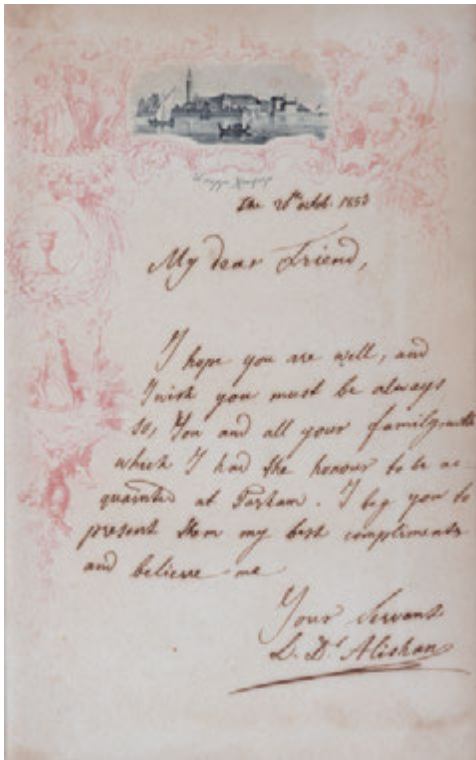 the 28th octob. 1853
My dear Friend,
I hope you are well, and
I wish you must be always
so, You and all your family, with
which I had the honour to be ac
quainted at Parham. I beg you to
present them my best compliments
and believe me
Your Servant
L. Dr Alishan